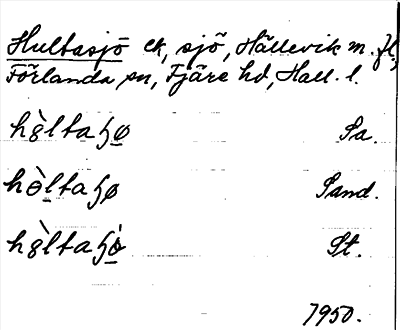 Hultasjö ek, sjö, Hällevik m. fl.,
Förlanda sn, Fjäre hd, Hall. l.
hə̀ltaɧø̲ Sa.
hɵ̀ltaɧø Sand.
hə̀ltaɧø̲̀ St.
1950.